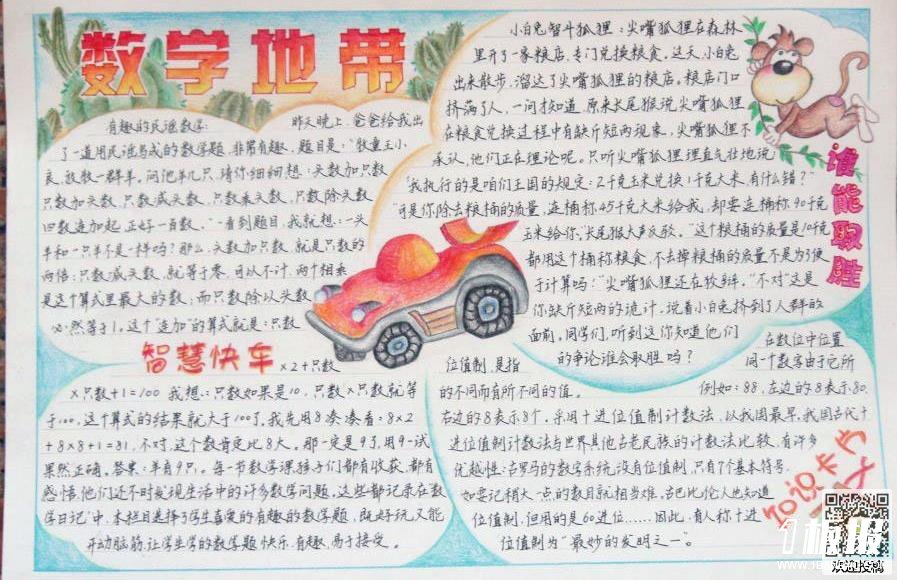 数学地带
有趣的民谣数学:
昨天晚上,爸爸给我出
了一道用民谣写成的数学题,非常有趣,题目是:“牧童王小
良,放牧一群羊。问他羊几只,请你细细想:头数加只数
只数加头数,只数减头数,只数乘头数,只数除头数
四数连加起,正好一百数。”一看到题目,我就想:一头
羊和一只羊不是一样吗?那么,头数加只数,就是只数的
两倍;只数减头数,就等于零,可以不计,两个相乘
是这个算式里最大的数;而只数除以头数
必然等于1。这个“连加”的算式就是:只数
×2+只数
×只数+1=100 我想:只数如果是10,只数×只数就等
于100,这个算式的结果就大于100了。我先用8凑凑看:8×2
+8×8+1=81,不对,这个数肯定比8大。那一定是9了,用9一试
果然正确。答案:羊有9只。每一节数学课孩子们都有收获,都有
感悟,他们还不时发现生活中的许多数学问题。这些都记录在“数
学日记”中,本栏目选择了学生喜爱的有趣的数学题,既好玩又能
开动脑筋,让学生学的数学题快乐、有趣、易于接受。
智慧快车
小白兔智斗狐狸:尖嘴狐狸在森林
里开了一家粮店,专门兑换粮食。这天,小白兔
出来散步,溜达了尖嘴狐狸的粮店。粮店门口
挤满了人,一问才知道,原来长尾猴说尖嘴狐狸
在粮食兑换过程中有缺斤短两现象,尖嘴狐狸不
承认,他们正在理论呢。只听尖嘴狐狸理直气壮地说
“我执行的是咱们王国的规定:2千克玉米兑换1千克大米,有什么错?”
“可是你除去粮桶的质量,连桶称45千克大米给我,却要连桶称90千克
玉米给你,”长尾猴大声反驳。“这个粮桶的质量是10千克
都用这个桶称粮食,不去掉粮桶的质量不是为了便
于计算吗?”尖嘴狐狸还在狡辩。“不对”这是
你缺斤短两的诡计,说着小白兔挤到了人群的
面前。同学们,听到这你知道他们
的争论谁会取胜吗?
谁能取胜
在数位中位置
位值制,是指
同一个数字由于它所
的不同而有所不同的值。
例如:88,左边的8表示80,
右边的8表示8个,采用十进位值制计数法,以我国最早,我国古代十
进位值制计数法与世界其他古老民族的计数法比较,有许多
优越性:古罗马的数字系统没有位值制,只有7个基本符号,
如要记稍大一点的数目就相当难,古巴比伦人也知道
位值制,但用的是60进位……因此,有人称十进
位值制为“最妙的发明之一”。
知识卡片
欢迎投稿